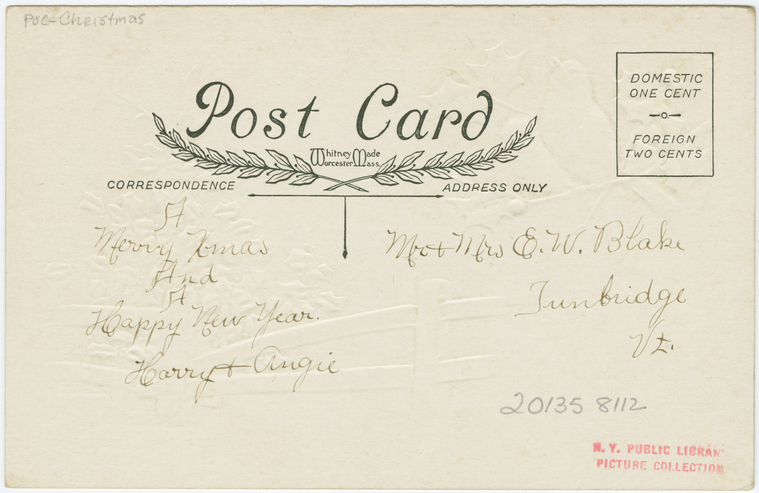 POC-Christmas
Post Card
Whitney Made
Worcester Mass.
DOMESTIC
ONE CENT
FOREIGN
TWO CENTS
CORRESPONDENCE
ADDRESS ONLY
A
Merry Xmas
And
A
Happy New Year.
Harry + Angie
Mr + Mrs E. W. Blake
Tunbridge
Vt.
20135 8112
N. Y. PUBLIC LIBRAR
PICTURE COLLECTION